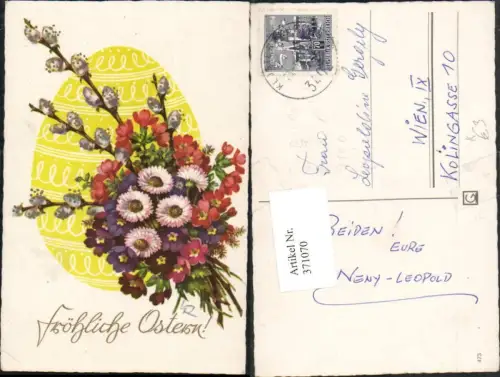 Fröhliche Ostern!
Frau
Leopoldine Gergely
WIEN, IX
KOLINGASSE 10
63
Artikel Nr.
371070
BEIDEN!
EURE
NENY-LEOPOLD
G
475